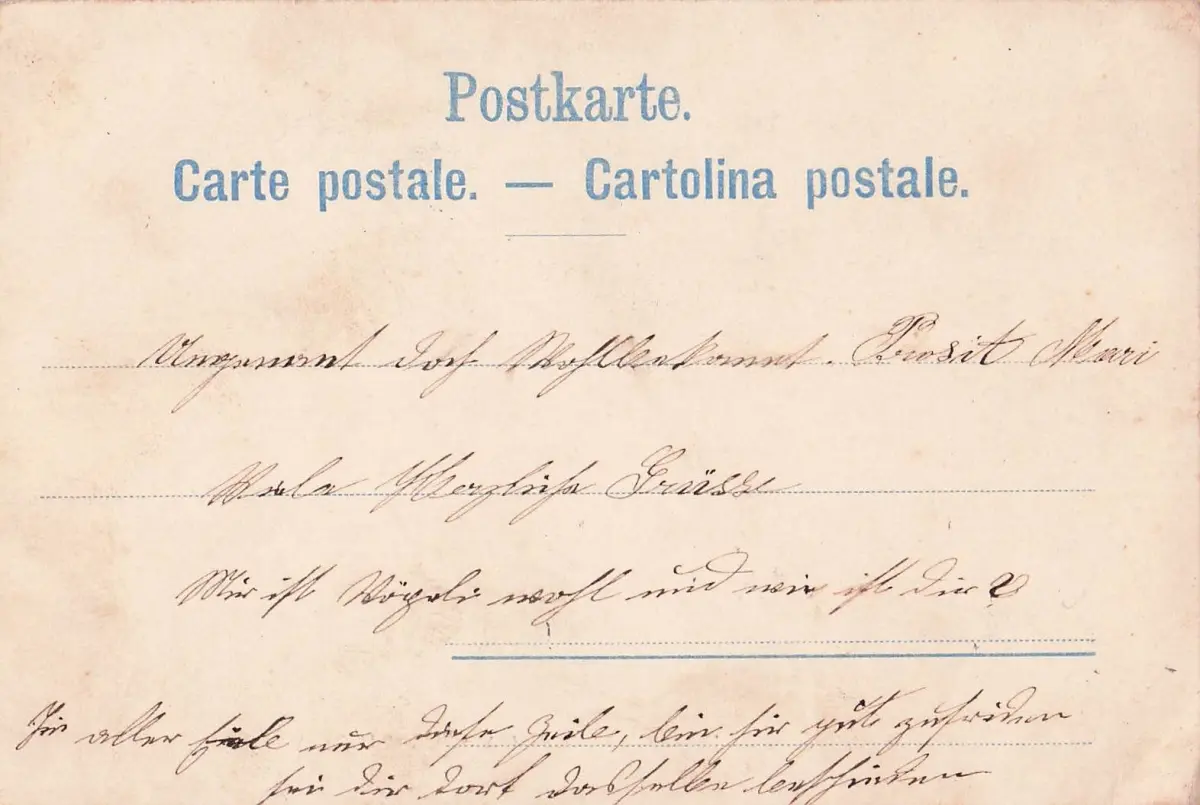 Postkarte.
Carte postale. — Cartolina postale.
Ungenannt doch Wohlbekannt. Prosit Mari
Viele Herzliche Grüsse
Mir ist Vögeli wohl und wie ist dir?
In aller Eile nur diese Zeile, bin hir gut zufriden
sei dir dort dasselbe beschieden